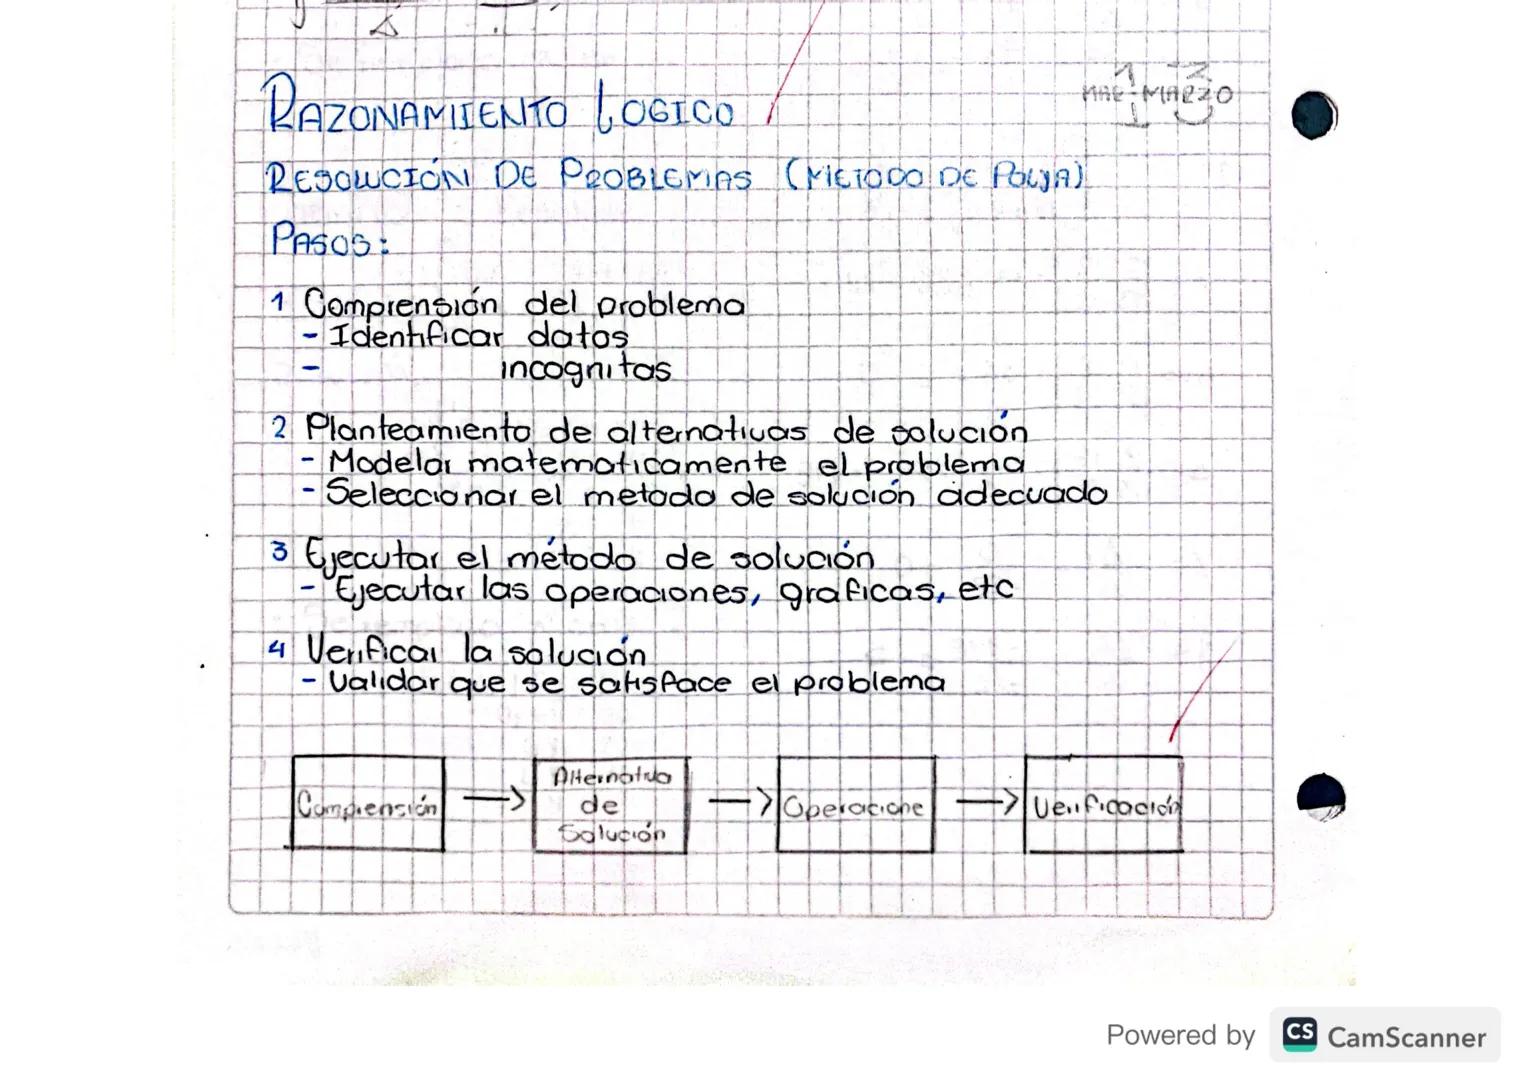 RAZONAMIENTO LOGICO
MAR-MARZO
RESOLUCIÓN DE PROBLEMAS (METODO DE POLYA)
PASOS:
1 Comprensión del problema
- Identificar datos
- incognitas
2 Planteamiento de alternativas de solución
- Modelar matematicamente el problema
- Seleccionar el metodo de solución adecuado
3 Ejecutar el método de solución
- Ejecutar las operaciones, graficas, etc
4 Verificar la solución
- Validar que se satisface el problema
Comprensión → Alternativa de Solución → Operacione → Verificación
Powered by CS CamScanner